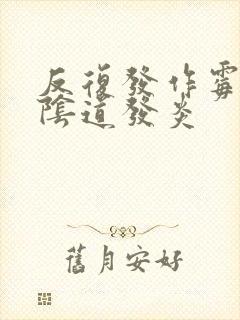 反復發作霉
陰道發炎
舊月安好